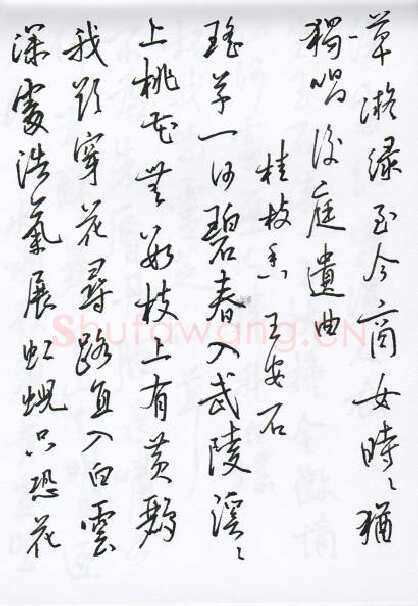 草凝绿至今商女時〻猶
獨唱後庭遺曲
桂枝香 王安石
瑶草一何碧春入武陵溪〻
上桃花無数枝上有黄鸝
我欲穿花尋路直入白雲
深處浩氣展虹蜺只恐花
Shufawang.CN